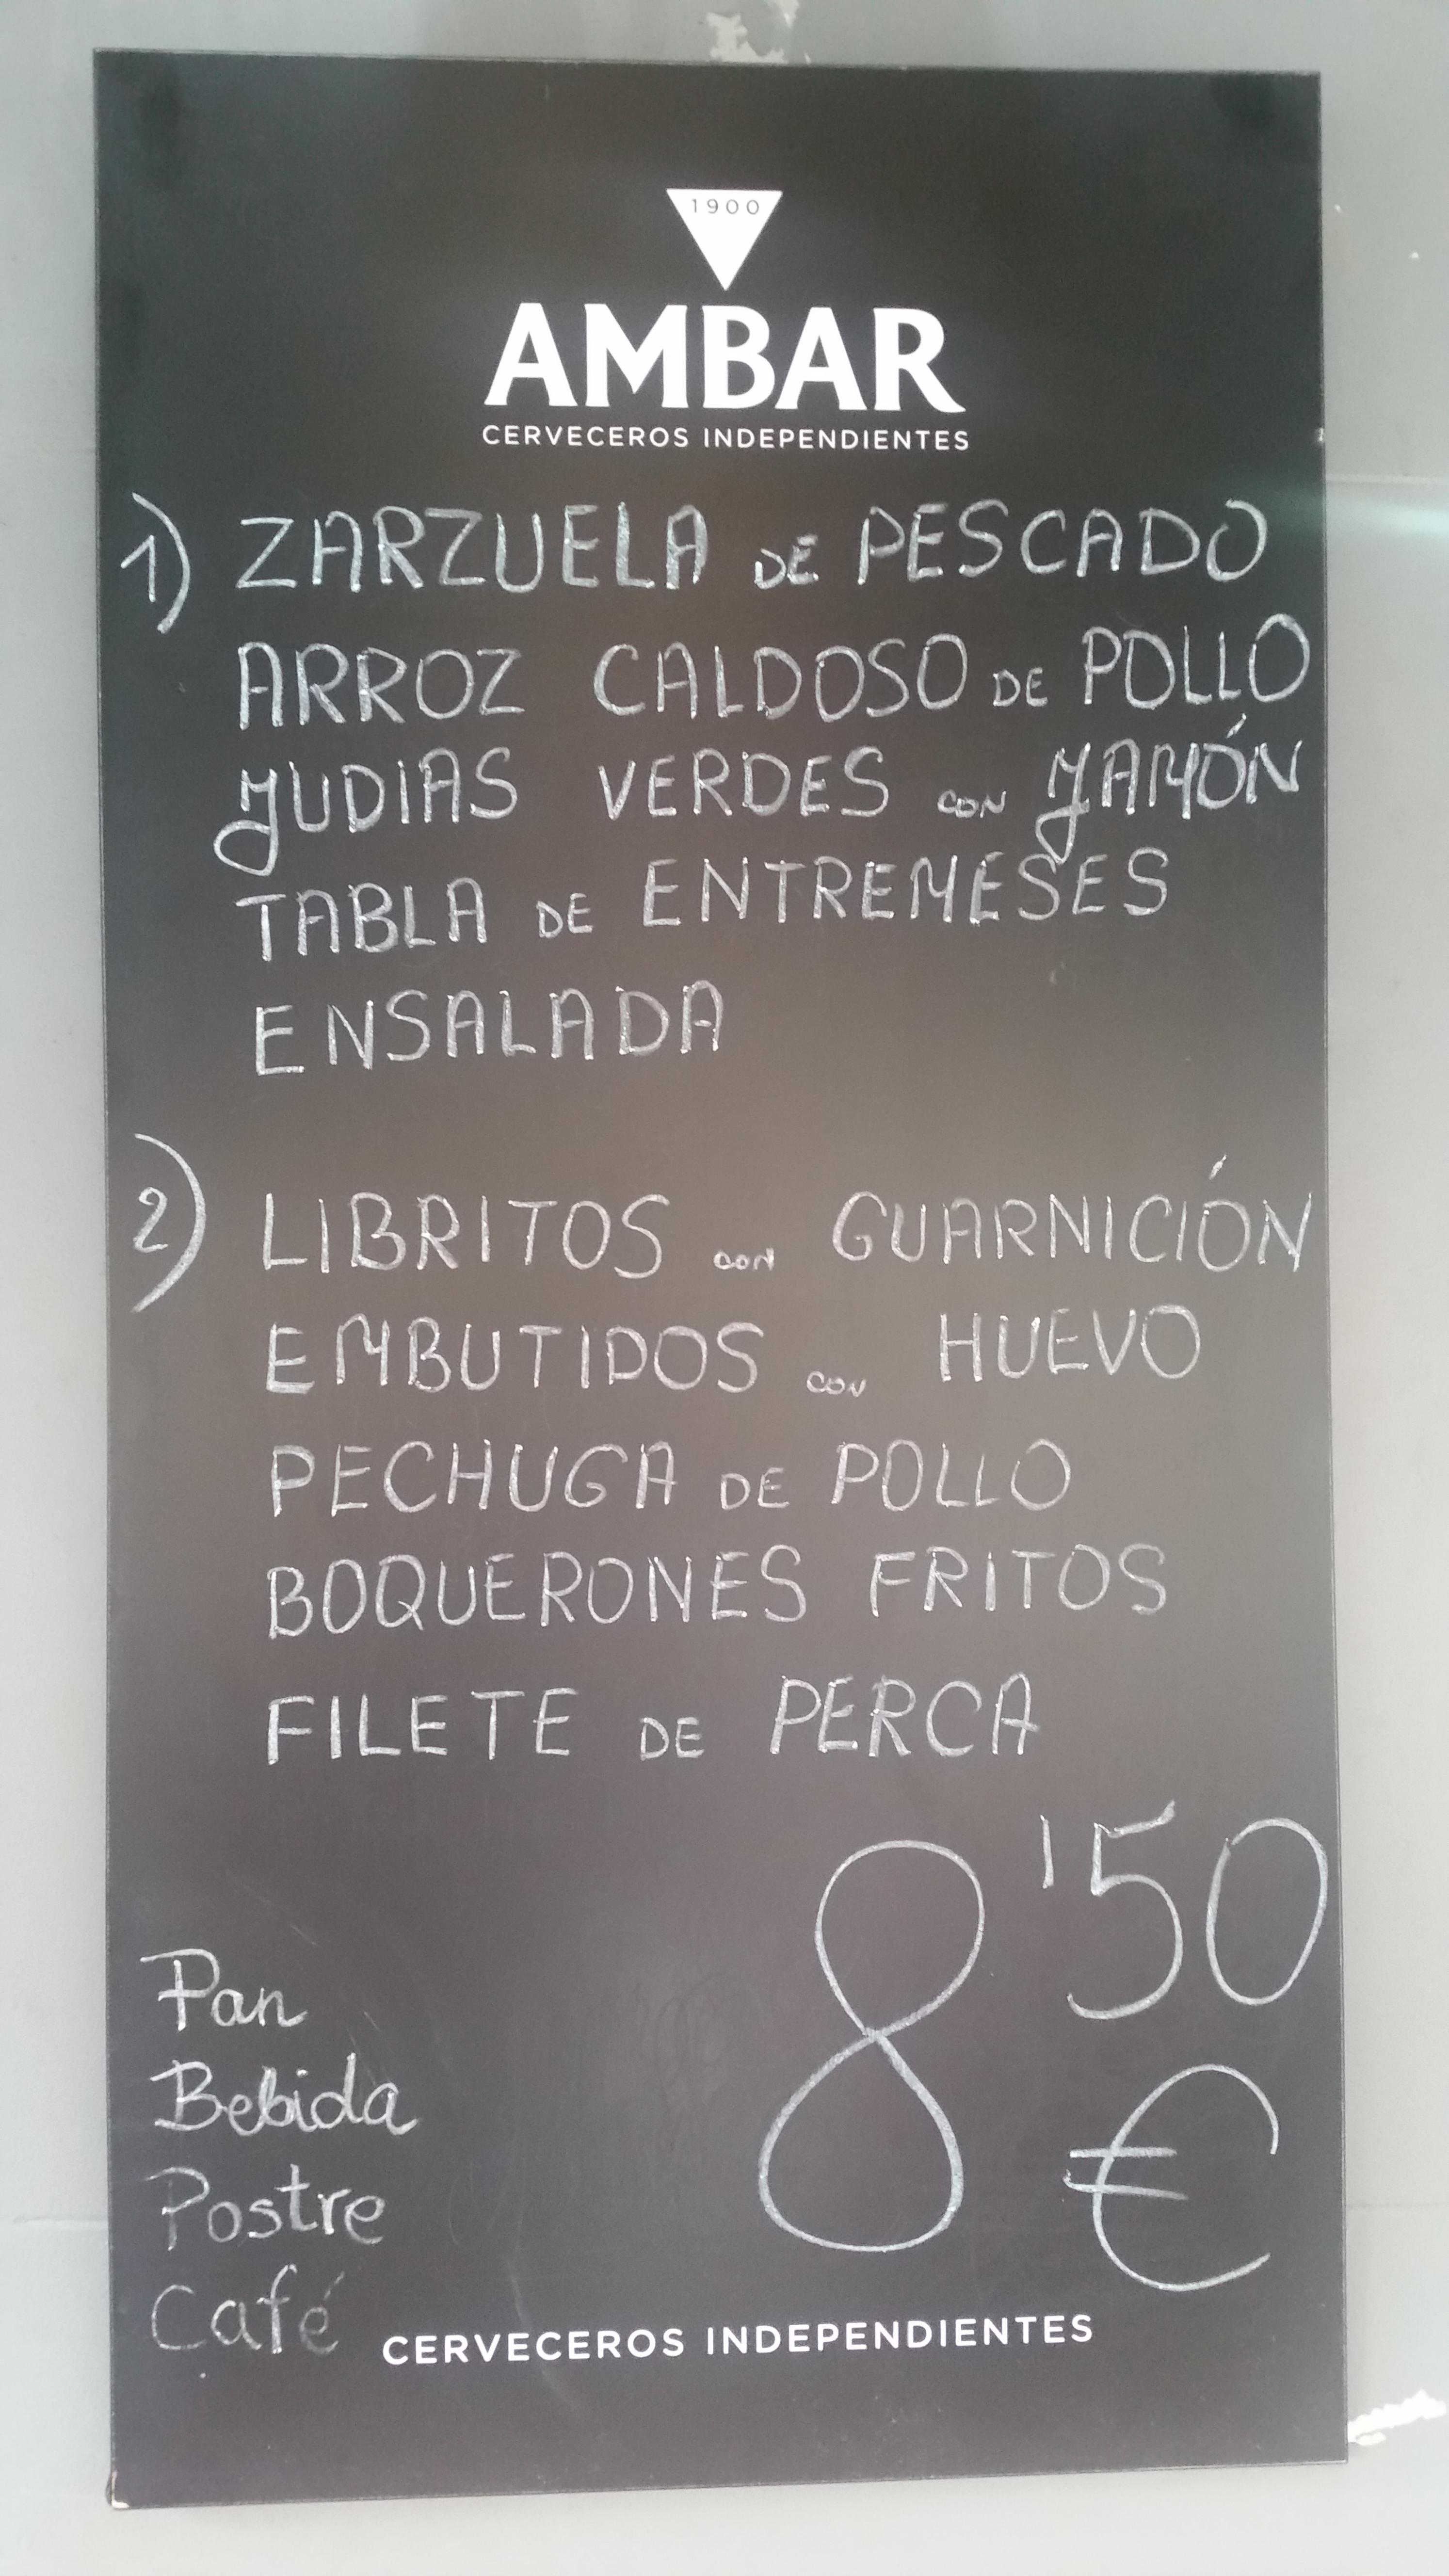 1900
AMBAR
CERVECEROS INDEPENDIENTES
1) ZARZUELA DE PESCADO
ARROZ CALDOSO DE POLLO
JUDIAS VERDES CON JAMÓN
TABLA DE ENTREMESES
ENSALADA
2) LIBRITOS CON GUARNICIÓN
EMBUTIDOS CON HUEVO
PECHUGA DE POLLO
BOQUERONES FRITOS
FILETE DE PERCA
8'50 €
Pan
Bebida
Postre
Café
CERVECEROS INDEPENDIENTES